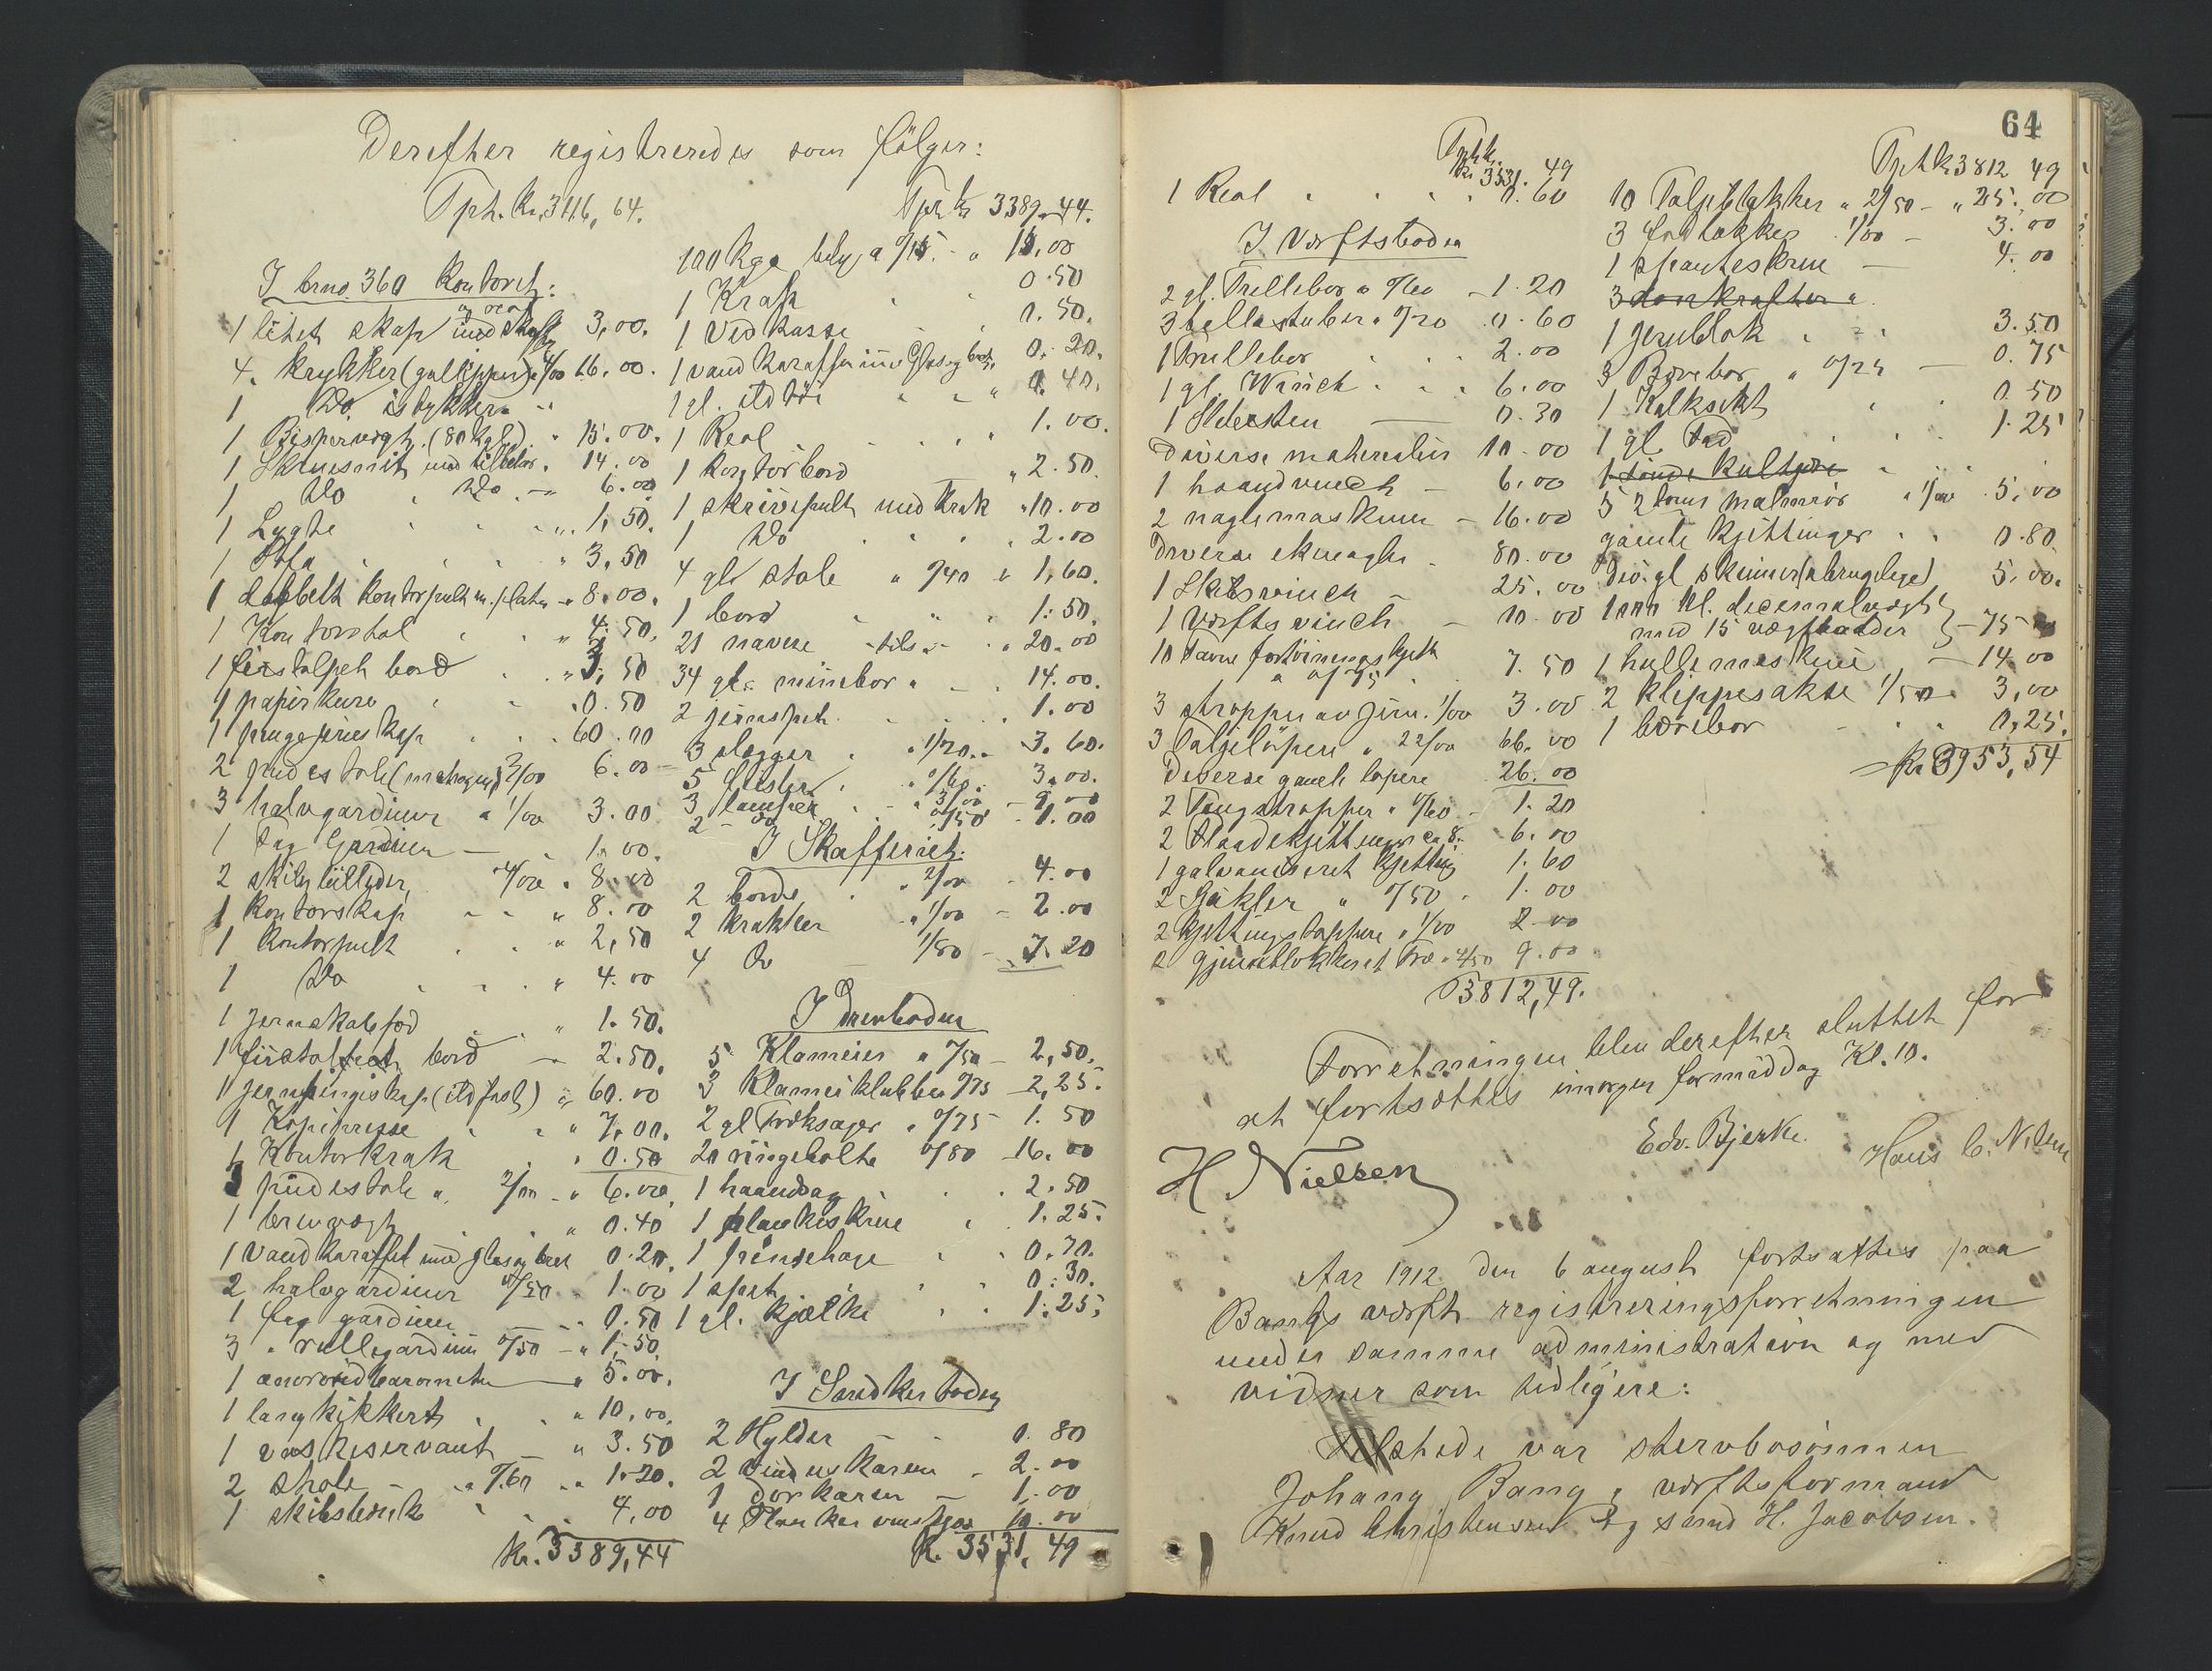 Derefter registreredes som følger:
Tph. Kr. 3116,64.
I brno. 360 Kontoret:
og reol
1 litet skap med skuff 3,00.
4. krykker (galley) a 4/00 16.00.
1 Do istykker
1 Bismervegt. (80 kg) " 15.00.
1 Skruesnit med tilbehør. 14.00
1 Do " Do — 6.00
1 Lygte " 1,50.
1 Sofa " 3,50
1 dobbelt Kontorpult m. plate " 8.00.
1 Kontorstol " 4.50.
1 firstolpet bord " 3,50
1 papirkurv 0.50
1 pengejernskap 60.00
2 pindestole (mahogni) 3/00 6.00
3 halvgardiner a 1/00 3.00
1 Fag Gardiner — 1.00.
2 skibsbilleder 4/00 " 8.00
1 Kontorskap " 8.00
1 Kontorpult " 2,50
1 Do " 4.00
1 Jernskabsfod " 1.50.
1 firstolpet bord — 2.50.
1 jernpengeskap (ildfast) " 60.00
1 Kopipresse " 7.00.
1 Kontorkrak 0.50
3 pindestole a 2/00 " 6.00
1 brevvægt " 0.40
1 Vandkaraffel med glas og bret 0.20.
2 halvgardiner 0/50 1.00
1 fag gardiner — 0.50
3 " rullegardiner 0/50 — " 1.50.
1 aneroidbarometer — " 5.00.
1 langkikkert " 10.00.
1 vaskeservant — " 3.50
2 stole — " 0/60 " 1.20.
1 skibsbænk 4,00
Kr. 3389,44
Tph Kr 3389.44.
100 kg bly a 0/15. — " 15,00
1 Krak 0.50
1 Vedkasse 0.50.
1 vandkaraffel m Glas og bret 0.20.
1 gl. ildtøi 0.40.
1 Reol " 1.00.
1 kontorbord — " 2.50.
1 skrivepult med krak " 10.00
1 Do 2.00
4 gl. stole " 0/40 " 1,60.
1 bord 1.50.
21 navere — tils — " 20.00
34 gl. minebor " — 14.00.
2 jernspet 1.00
3 slegger " 1/20 " 3.60.
5 fæster " 0/60 3.00.
3 lamper " 3/00 — 9.00
2 — do 0/50 — 1.00
I Skafferiet:
2 borde " 2/00 — 4.00
2 krakker " 1/00 — 2.00
4 Do 1/80 — 7.20
I Drevboden
5 Klameier " 0/50 — 2,50.
3 Klameiklubber 0/75 2,25.
2 gl Træksager " 0/75 1.50
20 ringebolte 0/80 16.00
1 haandsag 2.50
1 plankeskrue 1.25.
1 pindehage 0.70.
1 spet 0.30.
1 gl. kjælke 1.25.
I Snedkerboden
2 Hylder — 0.80
2 vindueskarmer 2.00
1 dørkarm — 1.00
4 Planker 10.00
Kr. 3531,49
64
Tph.
Kr. 3531.49
1 Reol 0.60
I Verftsboden
2 gl. Trillebor a 0/60 — 1.20
3 0/20 0.60
1 Trillebor 2.00
1 gl. Winch 6.00
1 Slibesten — 0.30
Diverse materialier 10.00
1 haandvinch — 6.00
2 naglemaskiner — 16.00
Diverse 80.00
1 Skibsvinch — 25.00
1 Værfts vinch — 10.00
10 Favne fortøiningskjetting
a 0/75 7.50
3 stropper av Jern 1/00 3.00
3 Taljeløpere " 22/00 66.00
Diverse gamle løpere 26.00
2 Tougstropper " 0/60 — 1.20
2 6.00
1 galvaniseret kjetting 1.60
2 Sjakler " 0/50 1.00
2 kjettingstoppere " 1/00 2.00
2 gjineblokker 4/50 9.00
3812,49.
Tph Kr 3812 49
10 Taljeblokker " 2/50 — " 25.00
3 fodblokker 1/00 — 3.00
1 spanteskrue — 4.00
3 donkrafter a
1 Jernblok 3.50
3 Bærebor " 0/25 — 0.75
1 Kalkseket 0.50
1 gl. Fad 1.25
1 tønde kultjære
5 2 toms malmrør " 1/00 5.00
gamle Kjettinger 0.80
Div. gl. skinner (ubrugelige) 5.00.
1000 Kl. decimalvægt
med 15 vægtlodder — 75
1 hullemaskine — 14.00
2 klippesakse 1/50 3,00
1 bærebor 0,25.
Kr 3953,54
Forretningen blev derefter sluttet for
at fortsættes imorgen formiddag Kl. 10.
H Nielsen
Edv. Bjerke.
Hans C. Nilsen
Aar 1912 den 6 august fortsattes paa
Bangs værft registreringsforretningen
under samme administration og med
vidner som tidligere:
Tilstede var stervbosønnen
Johang Bang, værftsformand
Knud Christensen og smed H. Jacobsen.